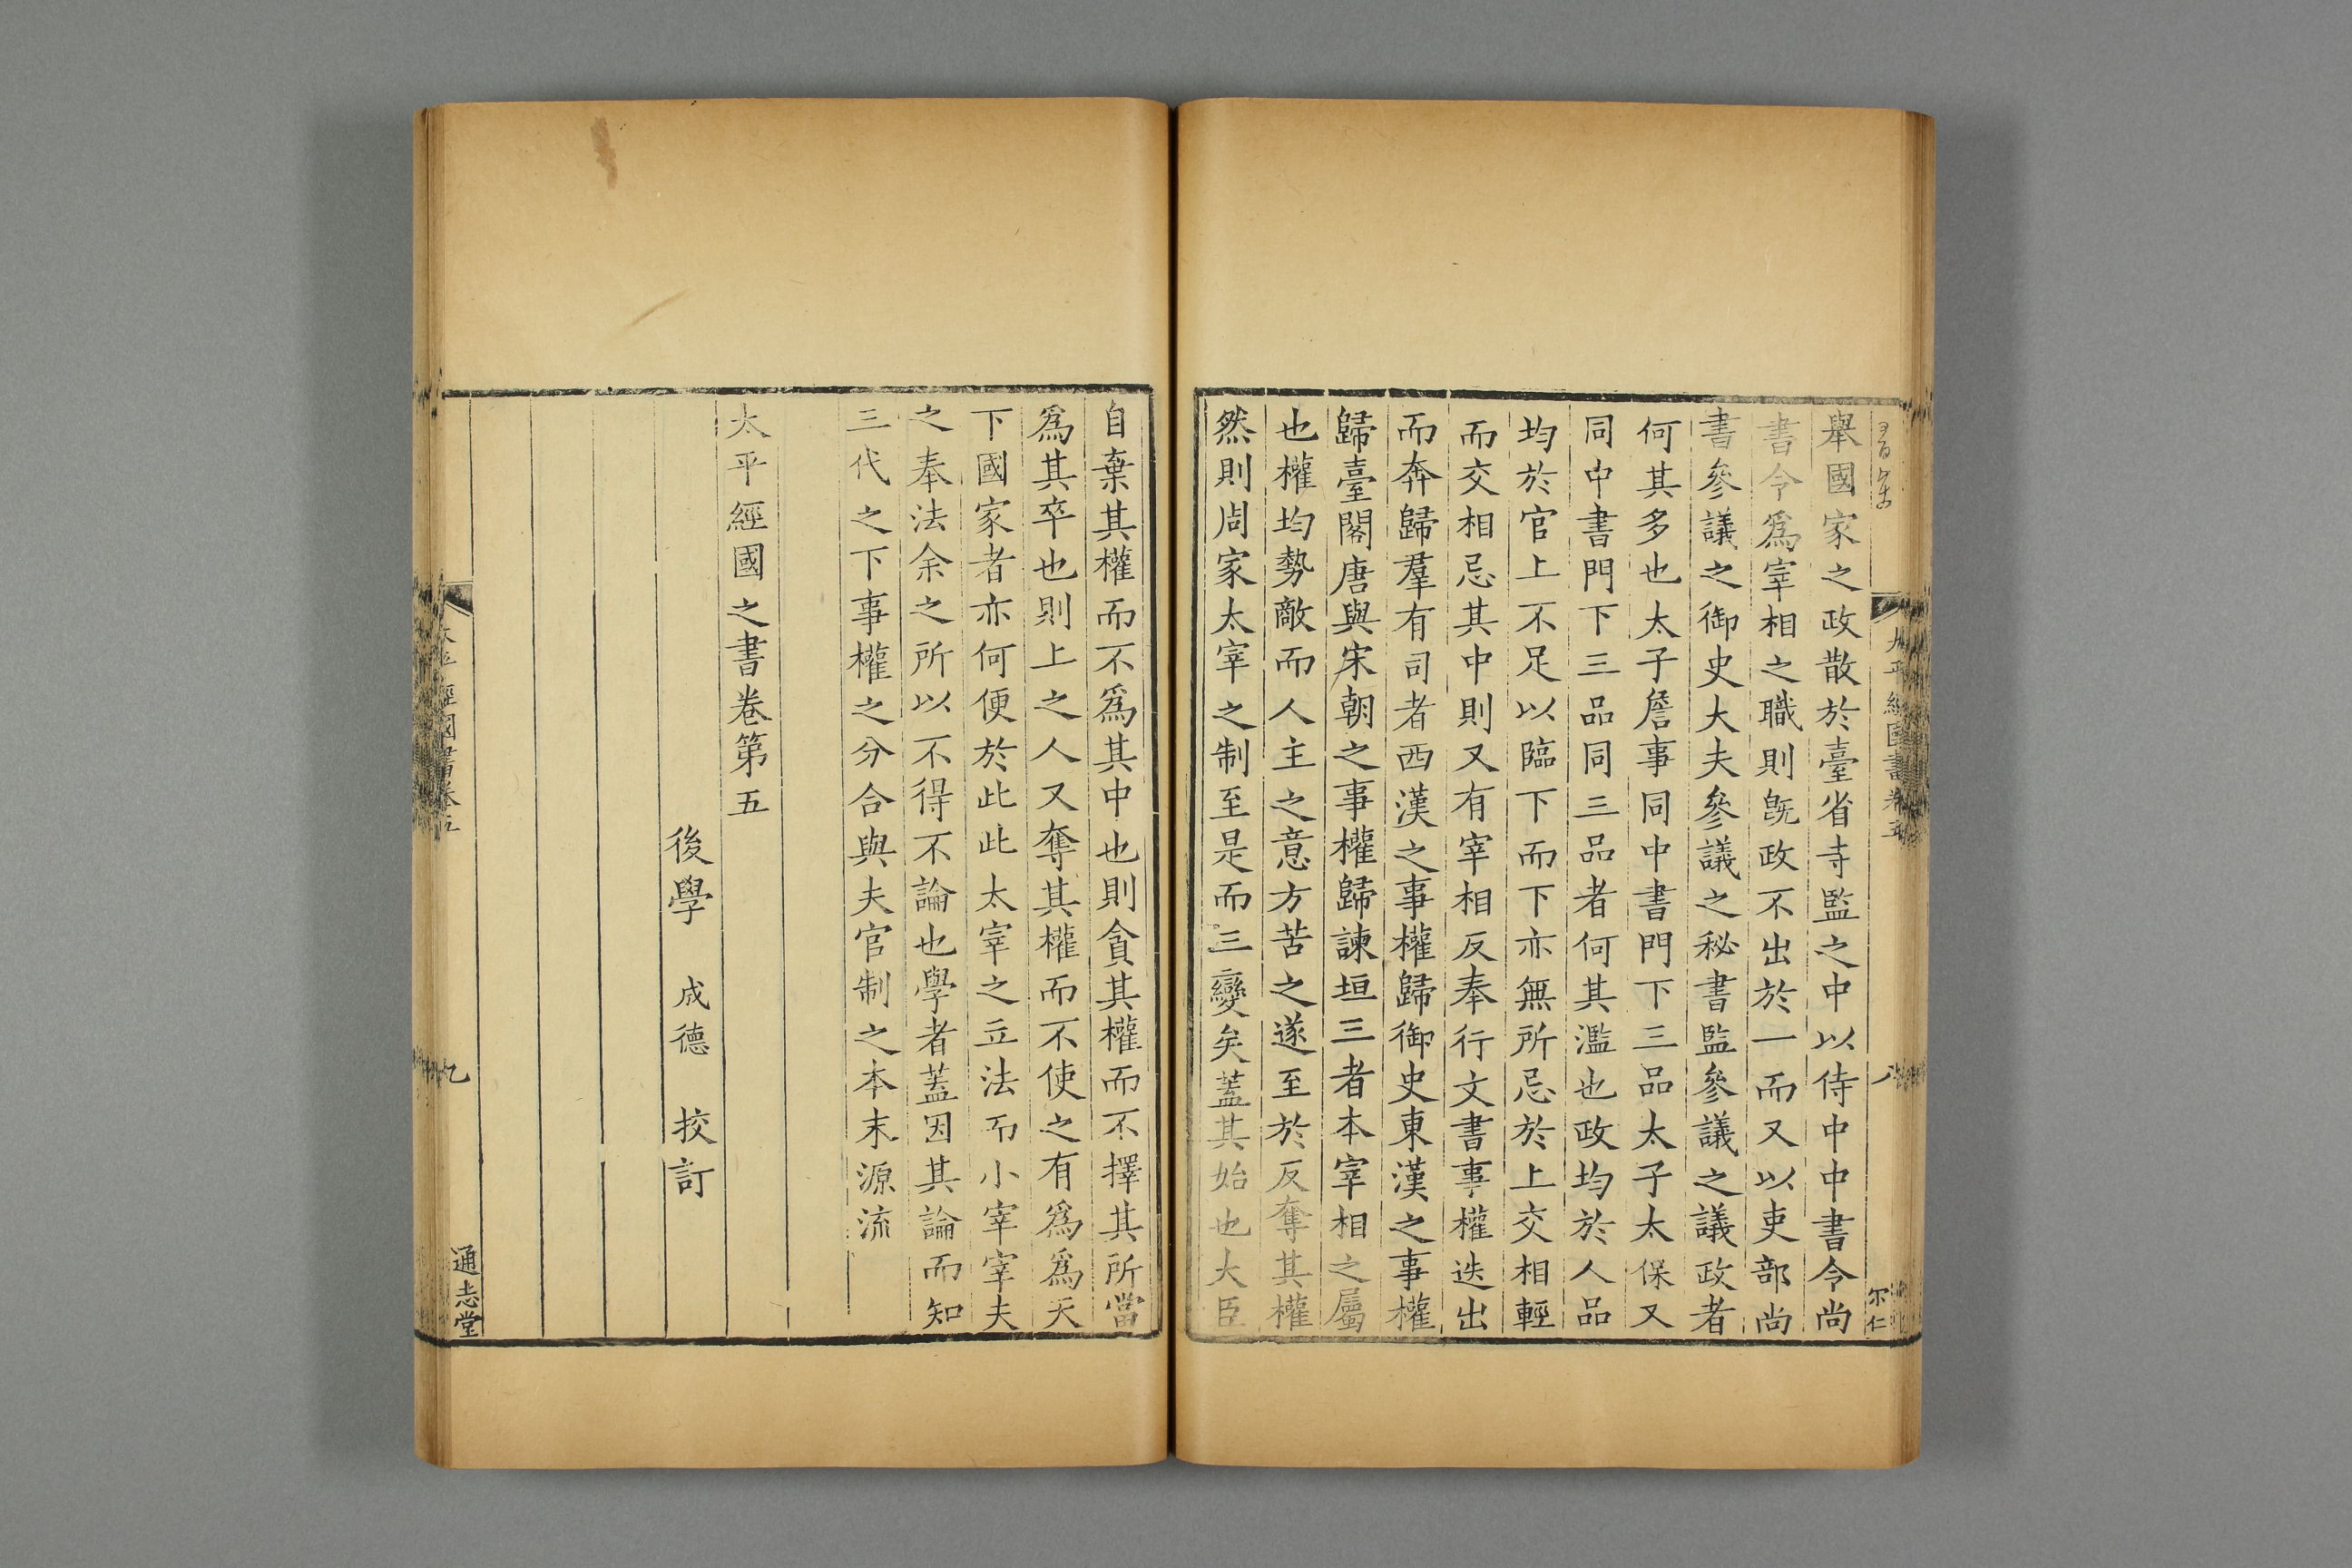 舉國家之政散於臺省寺監之中以侍中中書令尚
書令爲宰相之職則旣政不出於一而又以吏部尚
書參議之御史大夫參議之秘書監參議之議政者
何其多也太子詹事同中書門下三品太子太保又
同中書門下三品同三品者何其濫也政均於人品
均於官上不足以臨下而下亦無所忌於上交相輕
而交相忌其中則又有宰相反奉行文書事權迭出
而奔歸羣有司者西漢之事權歸御史東漢之事權
歸臺閣唐與宋朝之事權歸諫垣三者本宰相之屬
也權均勢敵而人主之意方苦之遂至於反奪其權
然則周家太宰之制至是而三變矣蓋其始也大臣
太平經國書卷五
八
尔仁
自棄其權而不爲其中也則貪其權而不擇其所當
爲其卒也則上之人又奪其權而不使之有爲爲天
下國家者亦何便於此此太宰之立法而小宰宰夫
之奉法余之所以不得不論也學者蓋因其論而知
三代之下事權之分合與夫官制之本末源流
太平經國之書卷第五
後學 成德 挍訂
太平經國書卷五
九
通志堂